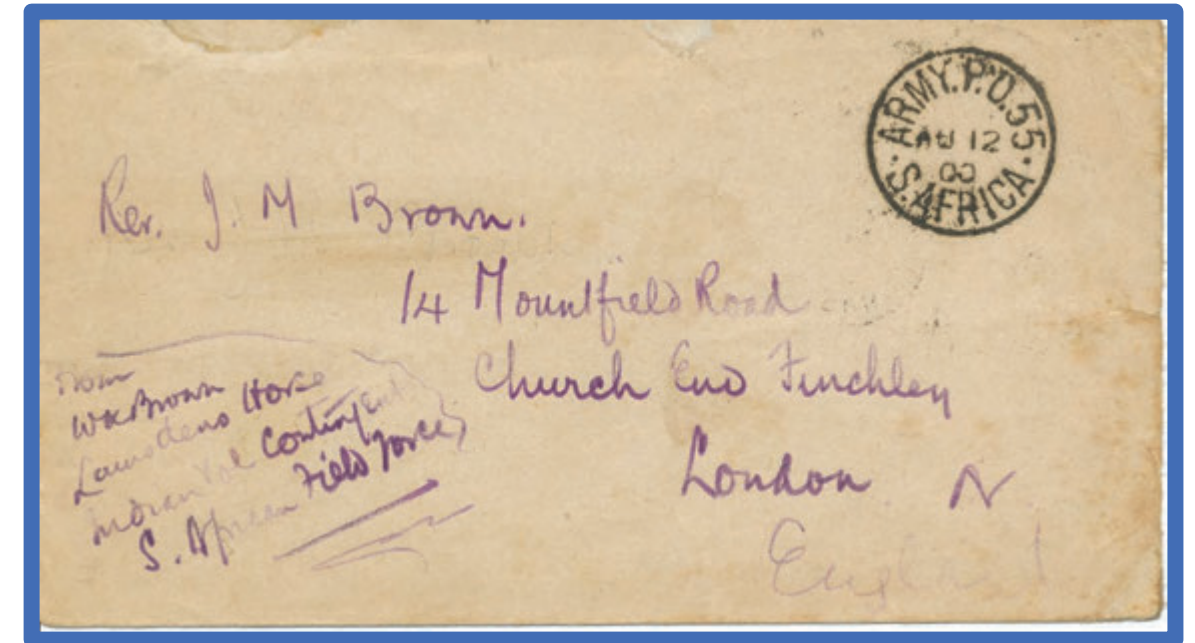 ARMY.P.O.55
AU 12
00
S.AFRICA
Rev. J. M Brown.
14 Mountfield Road
Church End Finchley
London N
England
From
Brown
Lumsdens Horse
Indian Vol Contingent
S. African Field Force